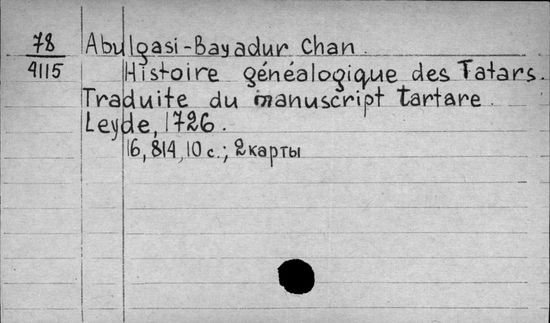 78 Abulgasi-Bayadur Chan.
4115 Histoire généalogique des Tatars.
Traduite du manuscript tartare.
Leyde, 1726.
16, 814, 10 с.; 2 карты